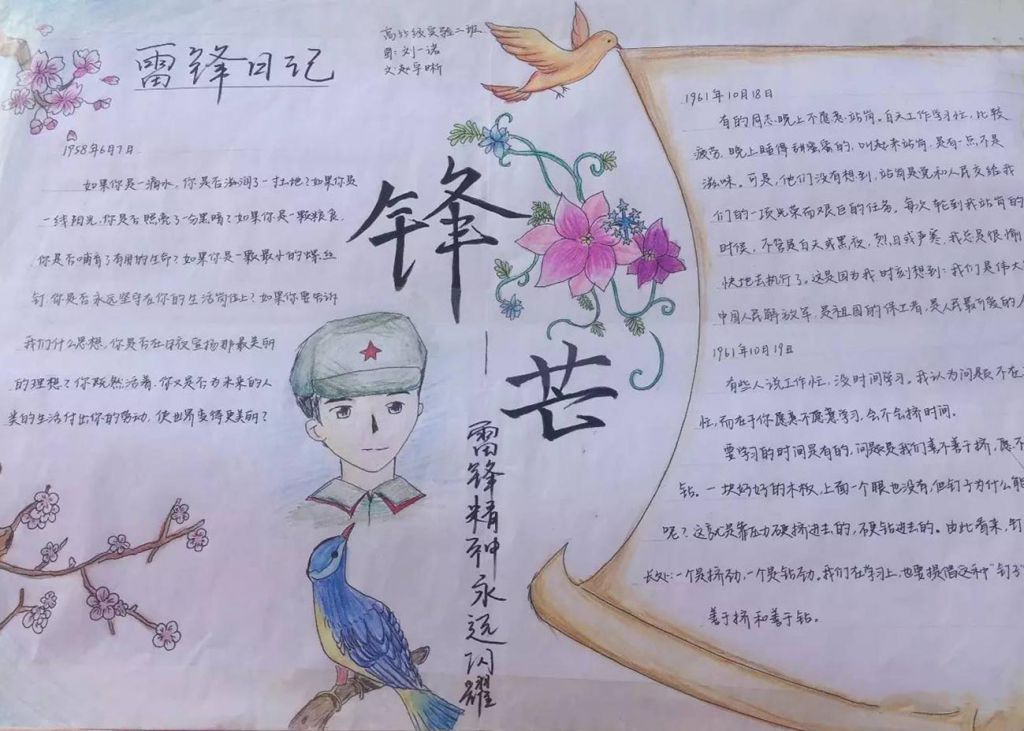 雷锋日记
1958年6月7日
如果你是一滴水,你是否滋润了一寸土地?如果你是
一线阳光,你是否照亮了一分黑暗?如果你是一颗粮食,
你是否哺育了有用的生命?如果你是一颗最小的螺丝
钉,你是否永远坚守在你的生活岗位上?如果你要告诉
我们什么思想,你是否在日夜宣扬那最美丽
的理想?你既然活着,你又是否为未来的人
类的生活付出你的劳动,使世界变得更美丽?
实验二班
刘一诺
锋
—
芒
雷锋精神永远闪耀
1961年10月18日
有的同志晚上不愿意站岗。白天工作学习忙,比较
疲劳,晚上睡得甜蜜蜜的,叫起来站岗,是有一点不是
滋味。可是,他们没有想到,站岗是党和人民交给我
们的一项光荣而艰巨的任务。每次轮到我站岗的
时候,不管是白天或黑夜,烈日或严寒,我总是很愉
快地去执行了。这是因为我时刻想到:我们是伟大
中国人民解放军,是祖国的保卫者,是人民最可爱的人
1961年10月19日
有些人说工作忙,没时间学习。我认为问题不在
忙,而在于你愿意不愿意学习,会不会挤时间。
要学习的时间是有的,问题是我们善不善于挤,愿不
钻。一块好好的木板,上面一个眼也没有,但钉子为什么能
呢?这就是靠压力硬挤进去的,硬钻进去的。由此看来,钉
长处:一个是挤劲,一个是钻劲。我们在学习上,也要提倡这种“钉子”
善于挤和善于钻。